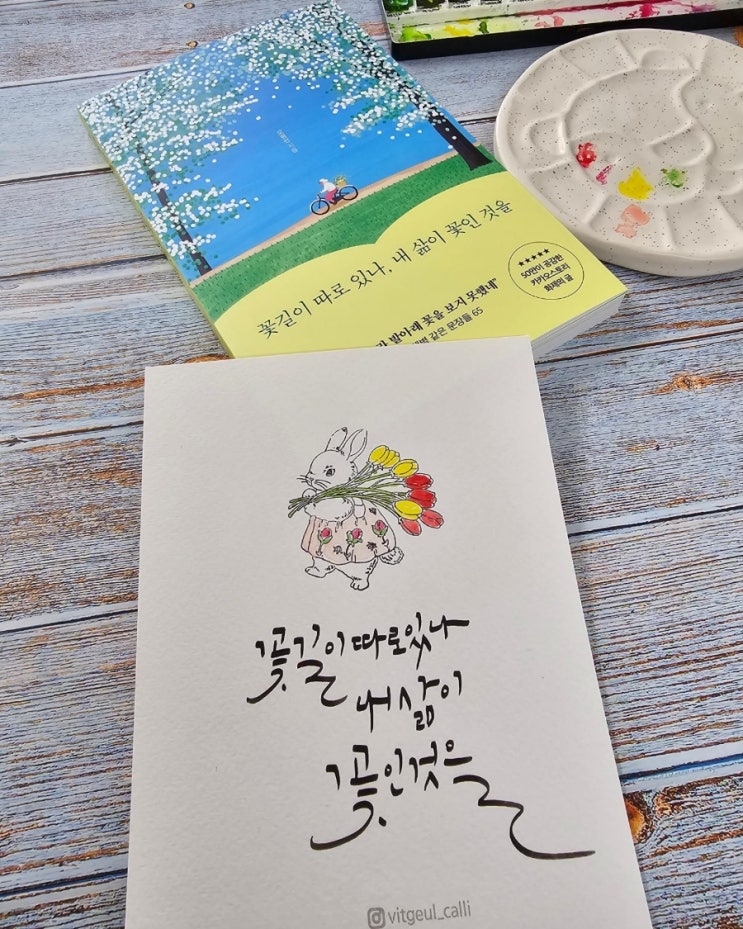 꽃길이 따로 있나, 내 삶이 꽃인 것을
★★★★★
50만이 공감한
카카오스토리
화제의 글
발아래 꽃을 보지 못했네"
같은 문장들 65
꽃길이 따로 있나
내 삶이
꽃인 것을
vitgeul_calli